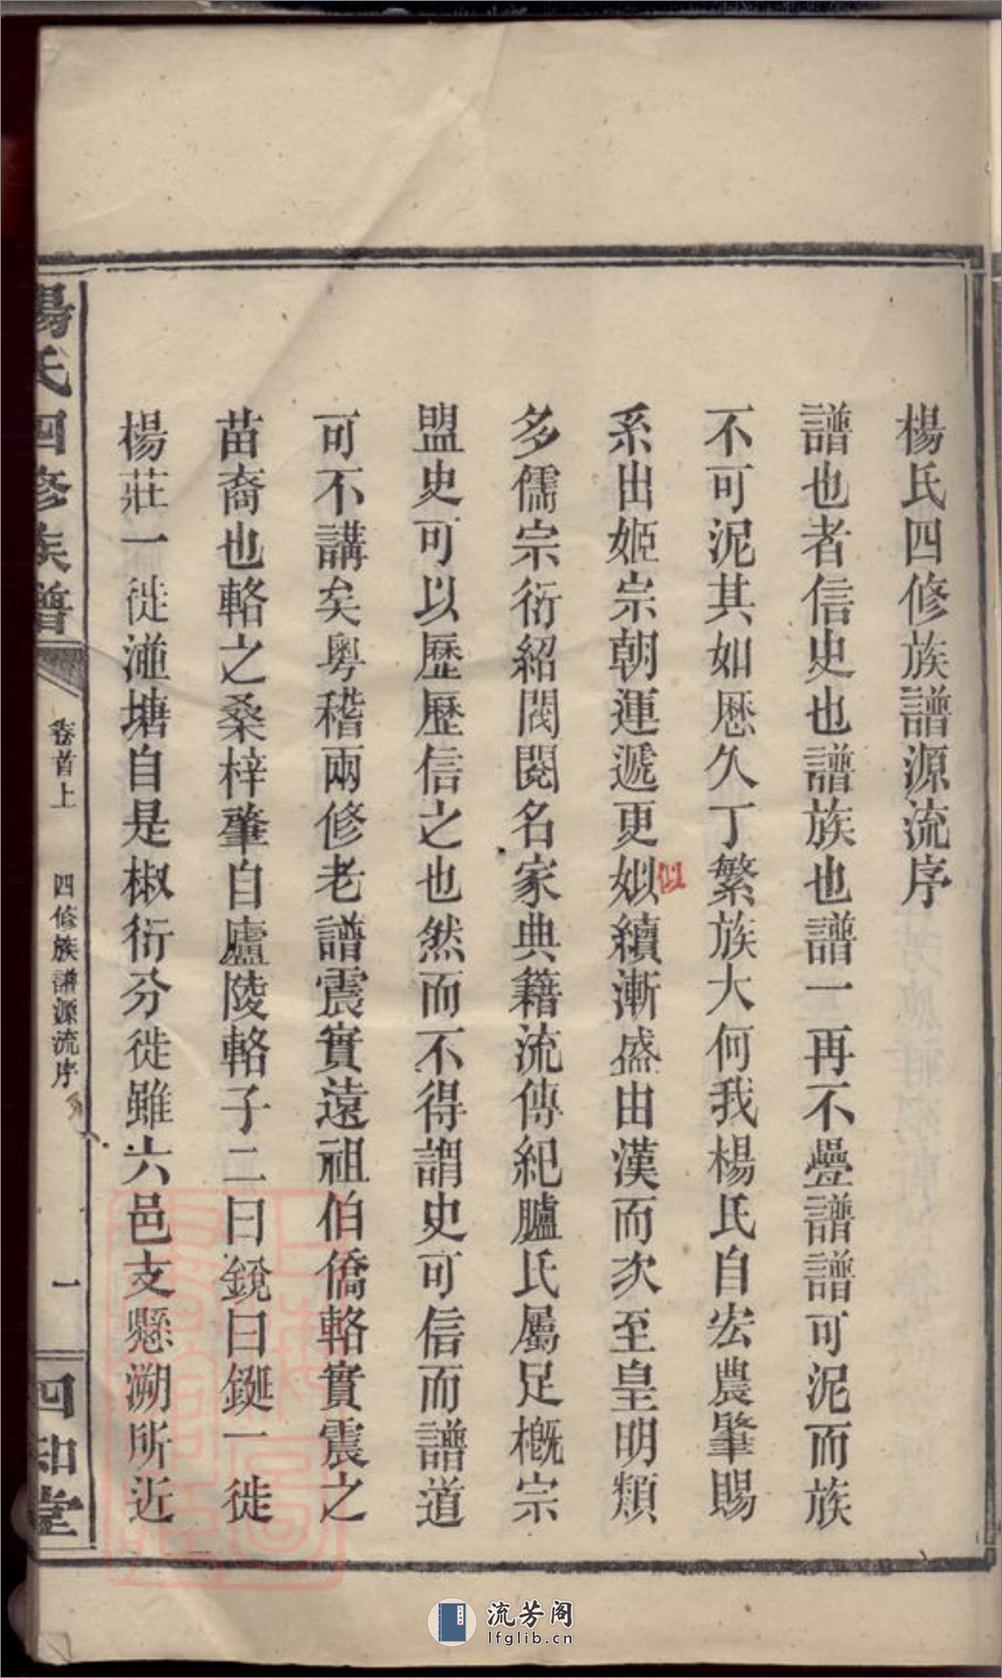 楊氏四修族譜源流序
譜也者信史也譜族也譜一再不疊譜譜可泥而族
不可泥其如歷久丁繁族大何我楊氏自宏農肇賜
系出姬宗朝運遞更姒續漸盛由漢而次至皇明類
似
多儒宗衍紹閥閱名家典籍流傳紀臚氏屬足概宗
盟史可以歷歷信之也然而不得謂史可信而譜道
可不講矣粵稽兩修老譜震實遠祖伯僑輅實震之
苗裔也輅之桑梓肇自廬陵輅子二曰銳曰鋋一徙
楊莊一徙湴塘自是椒衍分徙雖六邑支懸溯所近
楊氏四修族譜
卷首上
四修族譜源流序
一
四知堂
流芳阁
lfglib.cn